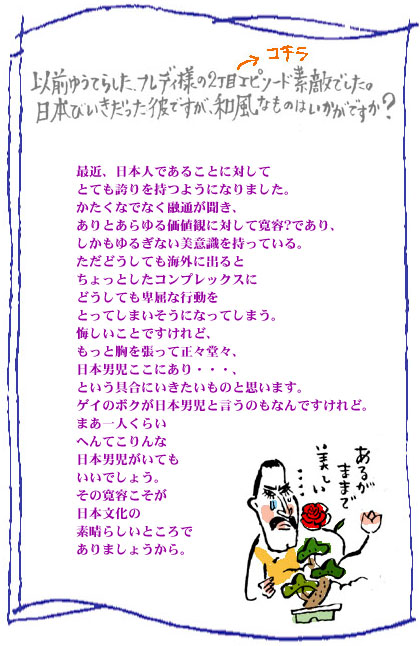 コチラ
以前ゆうてらした、フレディ様の2丁目エピソード素敵でした。
日本びいきだった彼ですが、和風なものはいかがですか?
最近、日本人であることに対して
とても誇りを持つようになりました。
かたくなでなく融通が聞き、
ありとあらゆる価値観に対して寛容?であり、
しかもゆるぎない美意識を持っている。
ただどうしても海外に出ると
ちょっとしたコンプレックスに
どうしても卑屈な行動を
とってしまいそうになってしまう。
悔しいことですけれど、
もっと胸を張って正々堂々、
日本男児ここにあり・・・、
という具合にいきたいものと思います。
ゲイのボクが日本男児と言うのもなんですけれど。
まあ一人くらい
へんてこりんな
日本男児がいても
いいでしょう。
その寛容こそが
日本文化の
素晴らしいところで
ありましょうから。
あるが
ままで
美しい
……